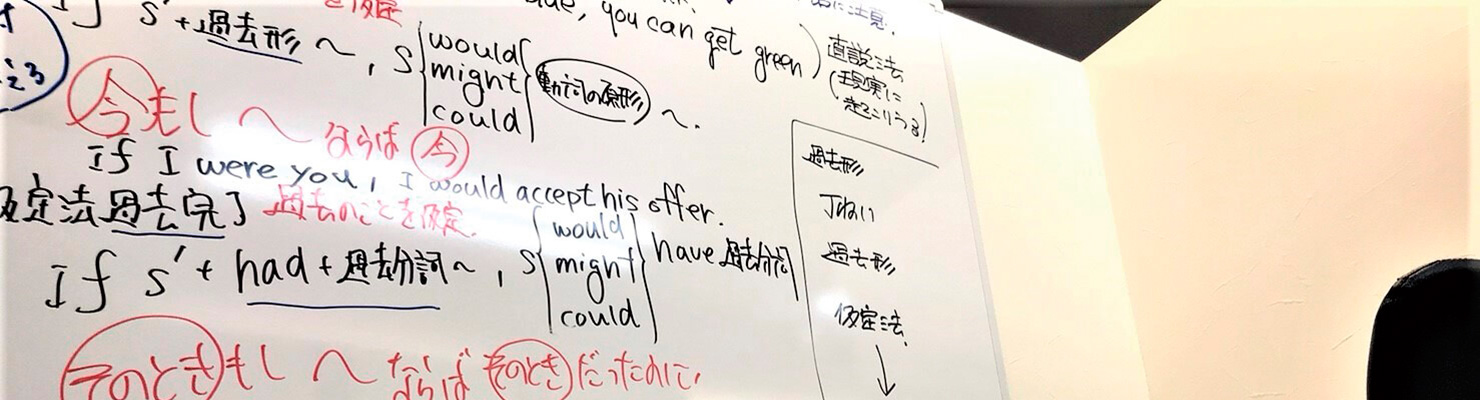 you can get green)
に注意.
直説法
(現実に
起こりうる)
If S'+過去形~, S{would might could}動詞の原形~.
今もし~ならば今
If I were you, I would accept his offer.
仮定法過去完了 過去のことを仮定.
If S'+had+過去分詞~, S{would might could}have 過去分詞
そのときもし~ならばそのときだったのに,
過去形
丁ねい
過去形
仮定法
↓